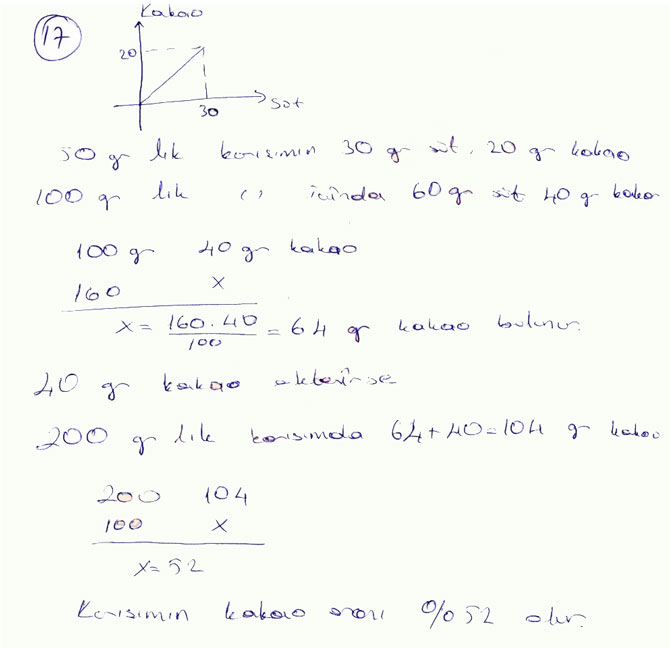 17
Kakao
20
30
Süt
50 gr lık karışımın 30 gr süt, 20 gr kakao
100 gr lık " içinda 60 gr süt 40 gr kakao
100 gr 40 gr kakao
160 x
x = 160.40 / 100 = 64 gr kakao bulunur.
40 gr kakao eklenirse
200 gr lık karışımda 64+40=104 gr kakao
200 104
100 x
x=52
Karışımın kakao oranı %52 olur.